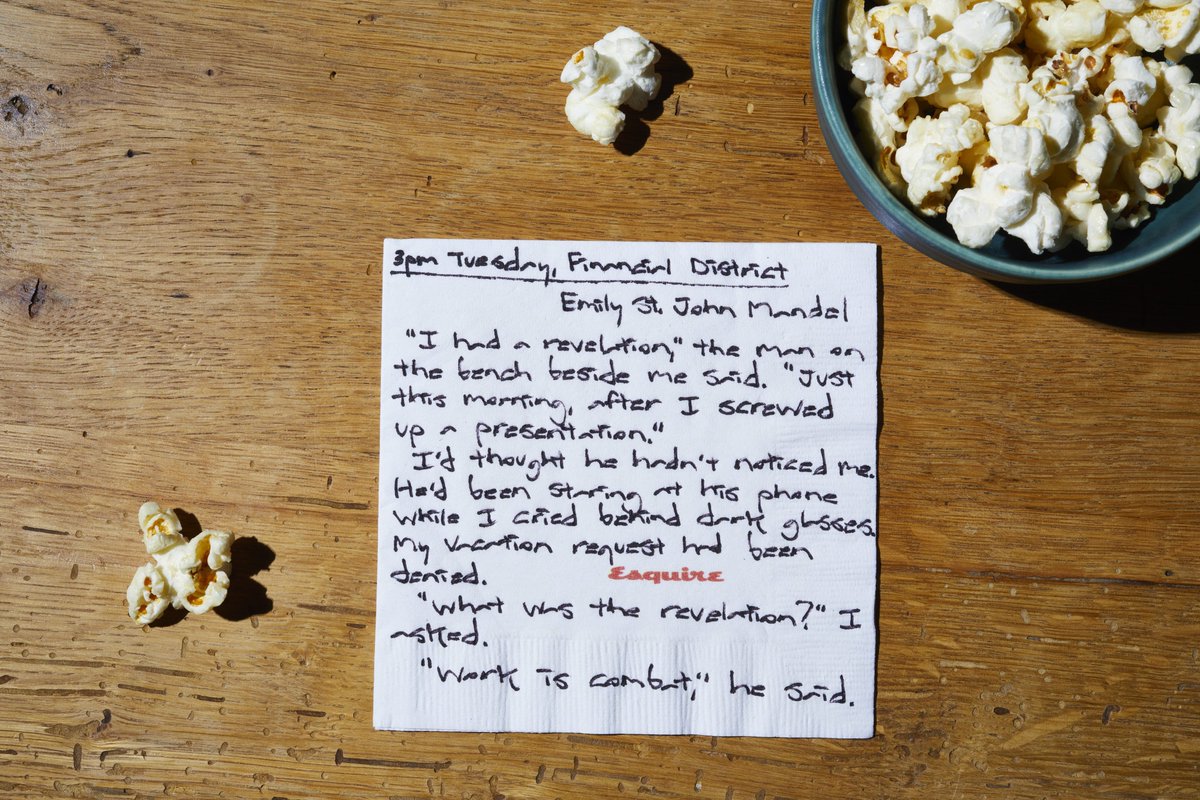 3pm Tuesday, Financial District
Emily St. John Mandel
"I had a revelation," the man on
the bench beside me said. "Just
this morning, after I screwed
up a presentation."
I'd thought he hadn't noticed me.
He'd been staring at his phone
while I cried behind dark glasses.
My vacation request had been
denied.
Esquire
"What was the revelation?" I
asked.
"Work is combat," he said.